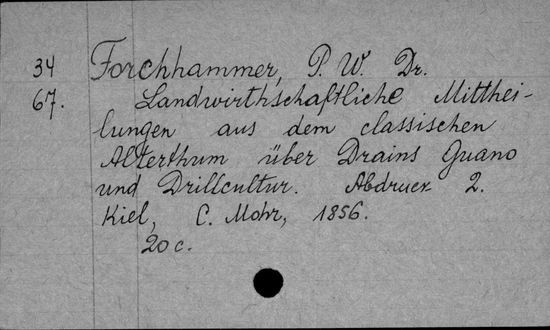 34 Forchhammer, P. W. Dr.
67. Landwirthschaftliche Mitthei-
lungen aus dem classischen
Alterthum über Drains Guano
und Drillcultur. Abdruck 2.
Kiel, C. Mohr, 1856.
20 c.